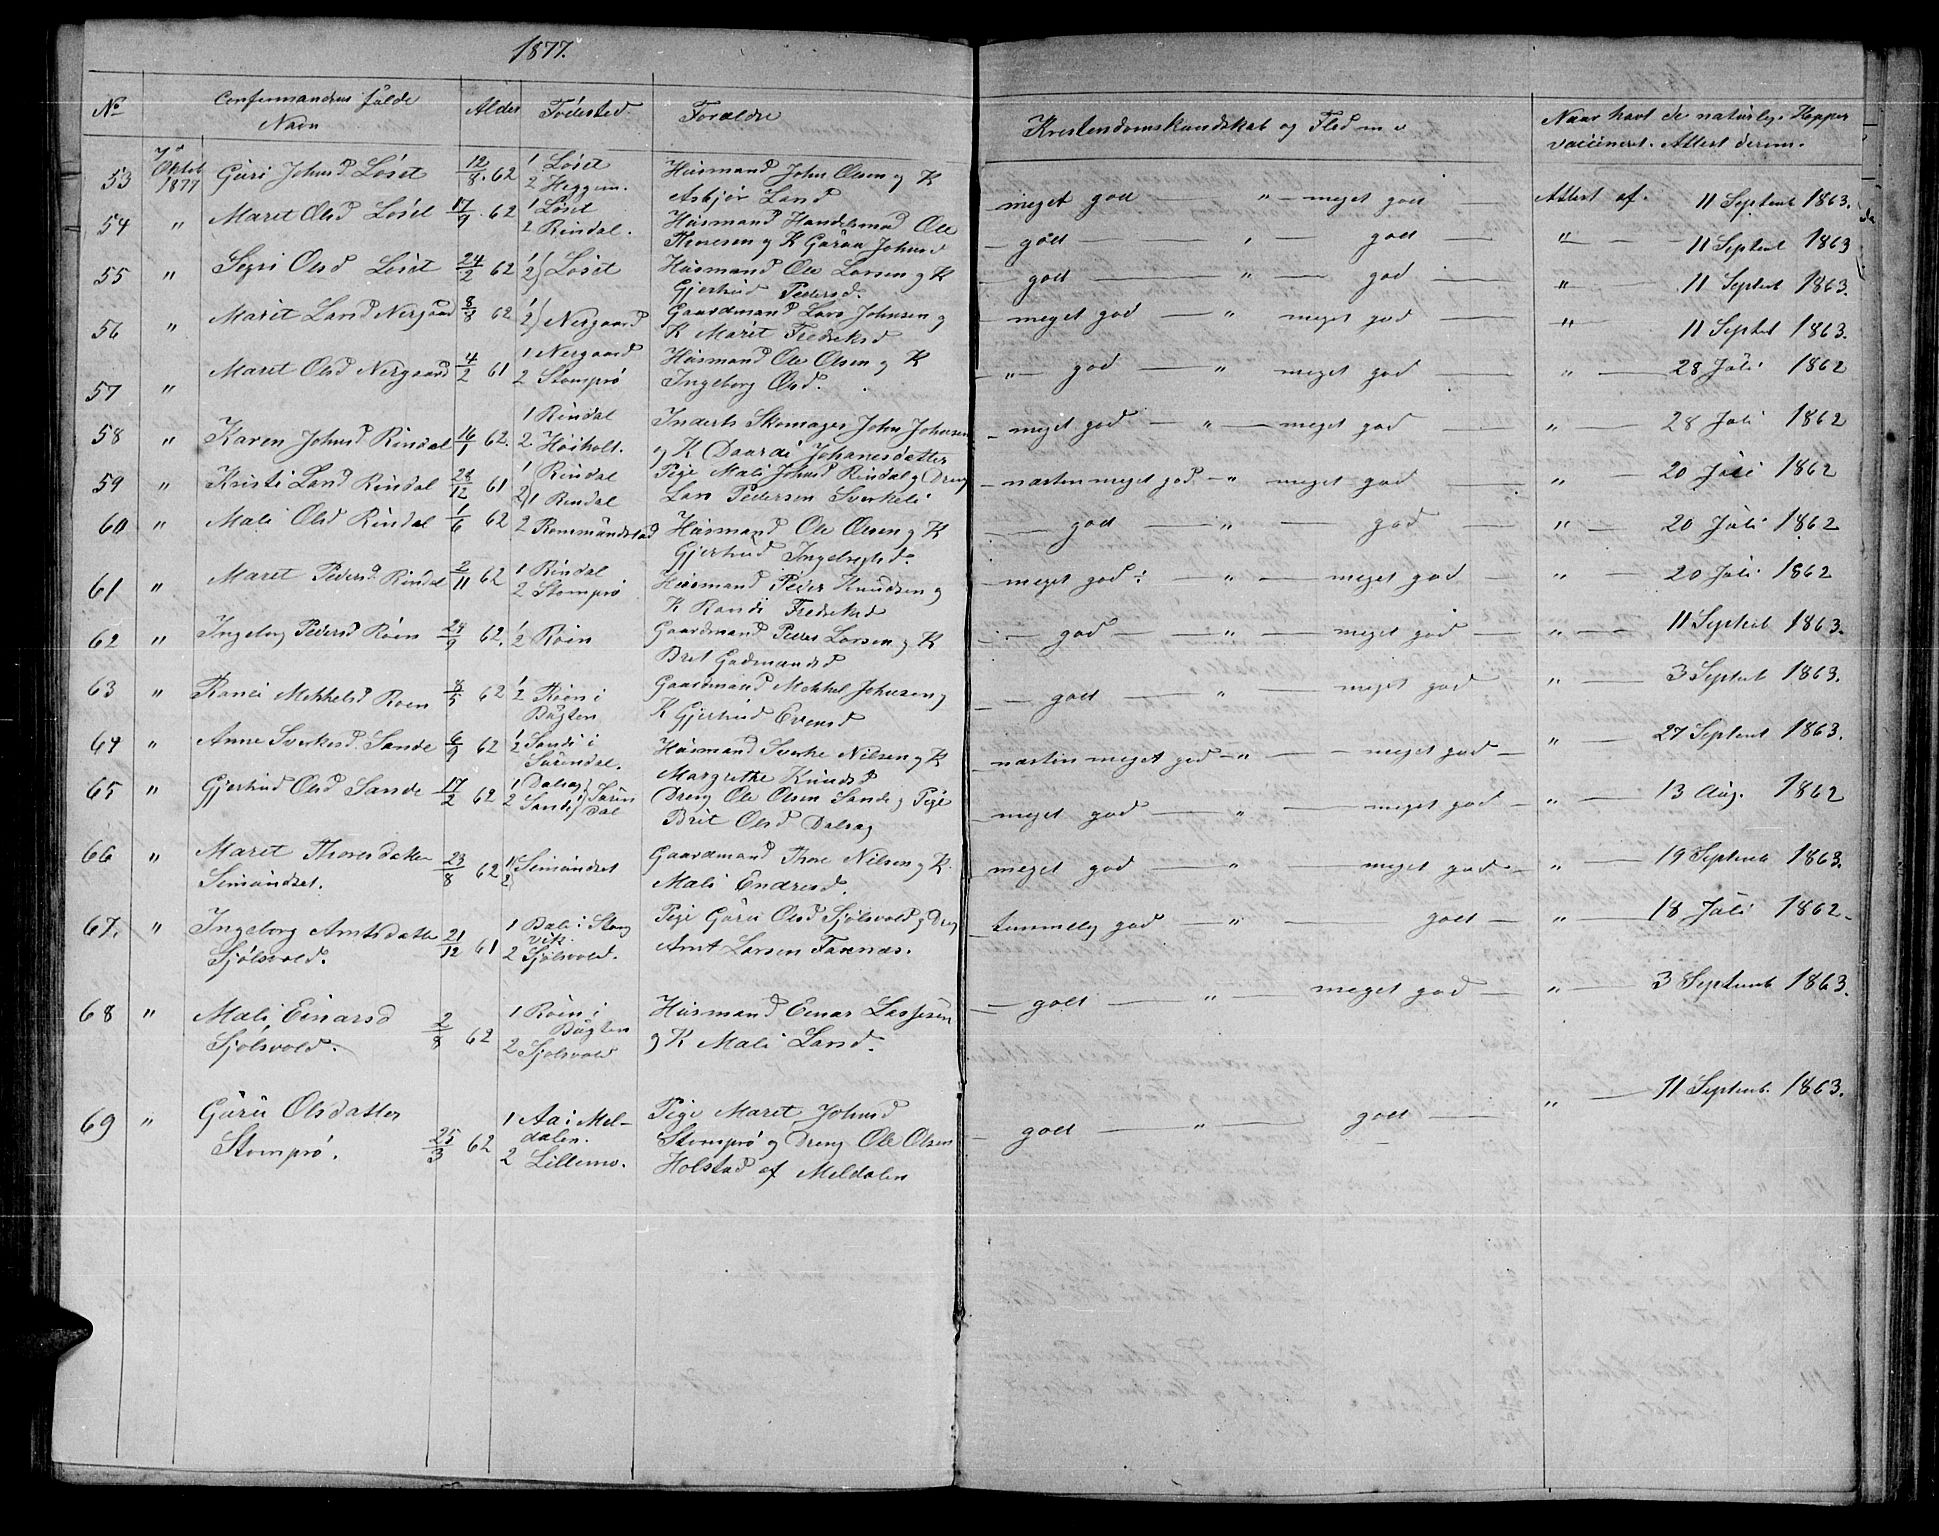 1877.
No Confirmandens fulde Navn Alder Fødested Forældre Kristendomskundskab og Flid m. v Naar havt de naturlig. Kopper vaccineret. Attest derom.
53 7de Oktob 1877 Guri Johnsd Løset 12/8. 62 1 Løset 2 Heggem. Husmand John Olsen og K Asbjør Land meget god " meget godt Attest af. 11 Septemb 1863.
54 " Maret Olsd Løset 17/9. 62 1 Løset 2 Rindal. Husmand Handelsmd Ole Thoresen og K Guraa Johnsd godt " godt " 11 Septemb 1863
55 " Segri Olsd Løset 24/2 62 1/2) Løset Husmand Ole Larsen og K Gjertrud Pedersd. godt " god " 11 Septemb 1863.
56 " Marit Larsd Nergaard 8/8 62 1/2) Nergaard Gaardmand Lars Johnsen og K Marit Fredriksd meget god " meget god " 11 Septbr 1863.
57 " Maret Olsd Nergaard 4/2 61 1 Nergaard 2 Stomprø Husmand Ole Olsen og K Ingeborg Olsd. " god " meget god " 28 Juli 1862
58 " Karen Johnsd Rindal 16/1 62. 1 Rindal 2. Høiholt. Inderst Skomager John Johnsen og K Daardi Johanesdatter meget god " meget god " 28 Juli 1862
59 " Kristi Larsd Rindal 28/12 61 1 Rindal 2) 1 Rindal Pige Mali Johnsd Rindal og Dreng Lars Pedersen Sverkeli næsten meget god " meget god " 20 Juli 1862
60 " Mali Olsd Rindal 1/6 62 2 Rommundstad Husmand Ole Olsen og K Gjertrud Ingebrigtsd. god " god " 20 Juli 1862
61 " Maret Pedersd Rindal 2/11 62 1 Rindal 2 Stomprø Husmand Peder Knudsen og K Randi Fredriksd meget god: " meget god " 20 Juli 1862
62 " Ingeborg Pedersd Røen 24/9 62. 1/2 Røen Gaardmand Peder Larsen og K Brit Gudmundsd god " meget god " 11 Septemb 1863.
63 " Randi Mikkelsd Røen 8/5 62 1/2 Røen i Bugten Gaardmand Mekkel Johnsen og K Gjertrud Evensd godt " meget god " 3 Septemb 1863.
64 " Anne Sverkesd. Sande 6/9 62 1/2 Sande i Surendal. Husmand Sverke Nilsen og K Margrethe Knudsd næsten meget god " meget god " 27 Septemb 1863.
65 " Gjertrud Olsd Sande 17/2 62 1 Dalseg 2 Sande) Surendal Dreng Ole Olsen Sande og Pige Brit Olsd Dalseg meget god " meget god " 13 Aug. 1862
66 " Maret Thoresdatter Simundset. 23/8 62 1/2) Simundset Gaardmand Thore Nilsen og K. Mali Endresd. meget god " meget god " 19 Septemb 1863.
67. " Ingeborg Arntsdatter Sjølsvold. 21/12 61 1 Bale i Stangvik. 2 Sjølsvold. Pige Guru Olsd Sjølsvold og Dreng Arnt Larsen Faxnæs. temmelig god " godt " 18 Juli 1862
68 " Mali Einarsd Sjølsvold. 2/8 62 1 Røen i Bugten 2 Sjølsvold Husmand Einar Lassesen og K Mali Larsd. godt " meget god " 3 Septemb 1863.
69 " Guru Olsdatter Stomprø. 25/3 62 1 Aa i Meldalen. 2 Lillemo. Pige Maret Johnsd Stomprø og Dreng Ole Olsen Holstad af Meldalen godt " godt " 11 Septemb. 1863.